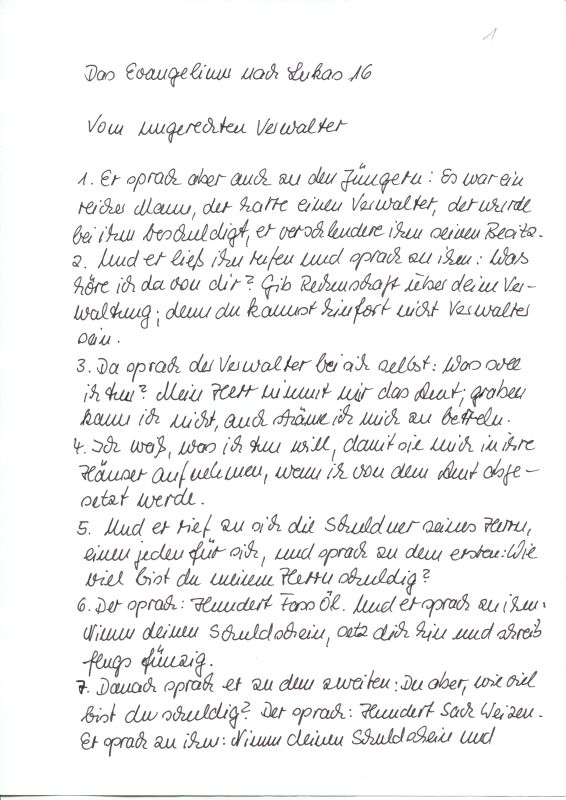 1
Das Evangelium nach Lukas 16
Vom ungerechten Verwalter
1. Er sprach aber auch zu den Jüngern: Es war ein
reicher Mann, der hatte einen Verwalter, der wurde
bei ihm beschuldigt, er verschleudere ihm seinen Besitz.
2. Und er ließ ihn rufen und sprach zu ihm: Was
höre ich da von dir? Gib Rechenschaft über deine Ver-
waltung; denn du kannst hinfort nicht Verwalter
sein.
3. Da sprach der Verwalter bei sich selbst: Was soll
ich tun? Mein Herr nimmt mir das Amt; graben
kann ich nicht, auch schäme ich mich zu betteln.
4. Ich weiß, was ich tun will, damit sie mich in ihre
Häuser aufnehmen, wenn ich von dem Amt abge-
setzt werde.
5. Und er rief zu sich die Schuldner seines Herrn,
einen jeden für sich, und sprach zu dem ersten: Wie
viel bist du meinem Herrn schuldig?
6. Der sprach: Hundert Fass Öl. Und er sprach zu ihm:
Nimm deinen Schuldschein, setz dich hin und schreib
flugs fünzig.
7. Danach sprach er zu dem zweiten: Du aber, wie viel
bist du schuldig? Der sprach: Hundert Sack Weizen.
Er sprach zu ihm: Nimm deinen Schuldschein und